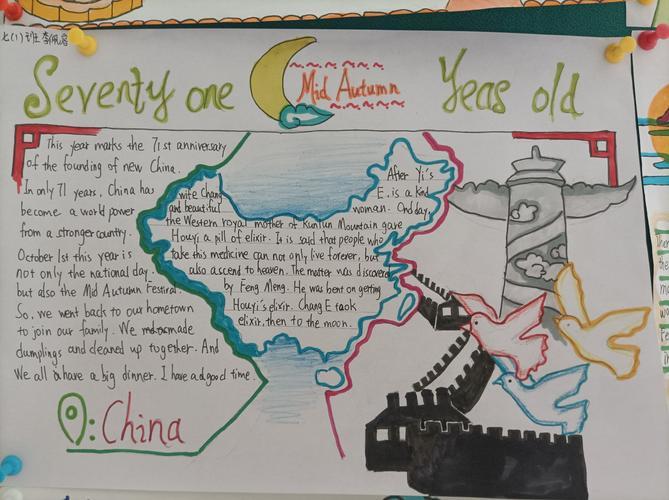 七(1)班
Seventy one
Mid Autumn
Yeas old
This year marks the 71st anniversary
of the founding of new China.
In only 71 years, China has
become a world power
from a stronger country.
October 1st this year is
not only the national day
but also the Mid Autumn Festival.
So, we went back to our hometown
to join our family. We made
dumplings and cleaned up together. And
we all have a big dinner. I have a good time.
: China
After Yi's
wife Chang E. is a kind
and beautiful woman. One day,
the Western royal mother of Kunlun Mountain gave
Houyi a pill of elixir. It is said that people who
take this medicine can not only live forever, but
also ascend to heaven. The matter was discovered
by Feng Meng. He was bent on getting
Houyi's elixir. Chang E took
elixir, then to the moon.